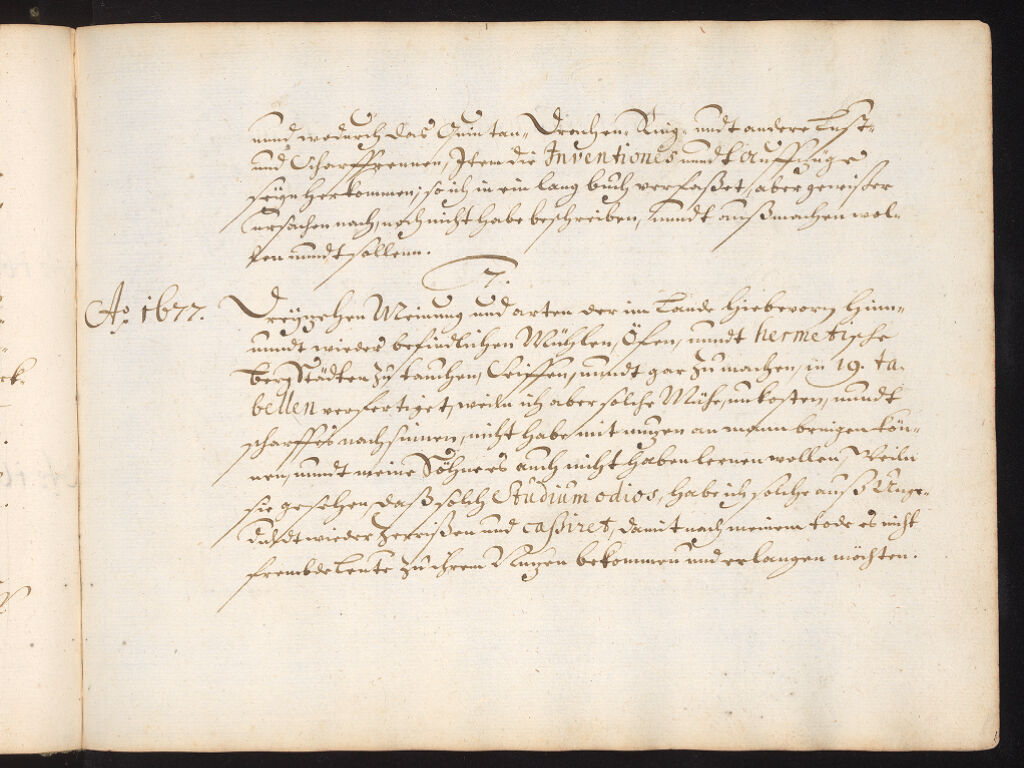 unnd wodurch das Quintan- Drachen- Ring- undt andere Lust-
und Scharffrennen, Item die Inventiones unndt Auffzüge
seyn herkommen; so ich in ein lang buch verfasset, aber gewisser
ursachen nach, noch nicht habe beschreiben, unndt aussmachen wol-
len unndt sollenn.
7.
Ao. 1677.
Dreyzehen Meinung und arten der im Lande hiebevorn hinn-
unndt wieder befindlichen Mühlen, Öfen, unndt hermetische
berg Städten zu tauchen, Seiffen, unndt gar zu machen, in 19. ta-
bellen verfertiget, weiln ich aber solche Mühe, unkosten, unndt
scharffes nachsinnen, nicht habe mit nuzen an mann bringen kön-
nen, unndt meine Söhne es auch nicht haben lernen wollen, Weiln
sie gesehen, dass solch Studium odios, habe ich solche auss Unge-
duldt wieder zerrissen und cassiret, damit nach meinem tode es nicht
frembde Leute zu ihrem Nuzen bekommen und erlangen möchten.